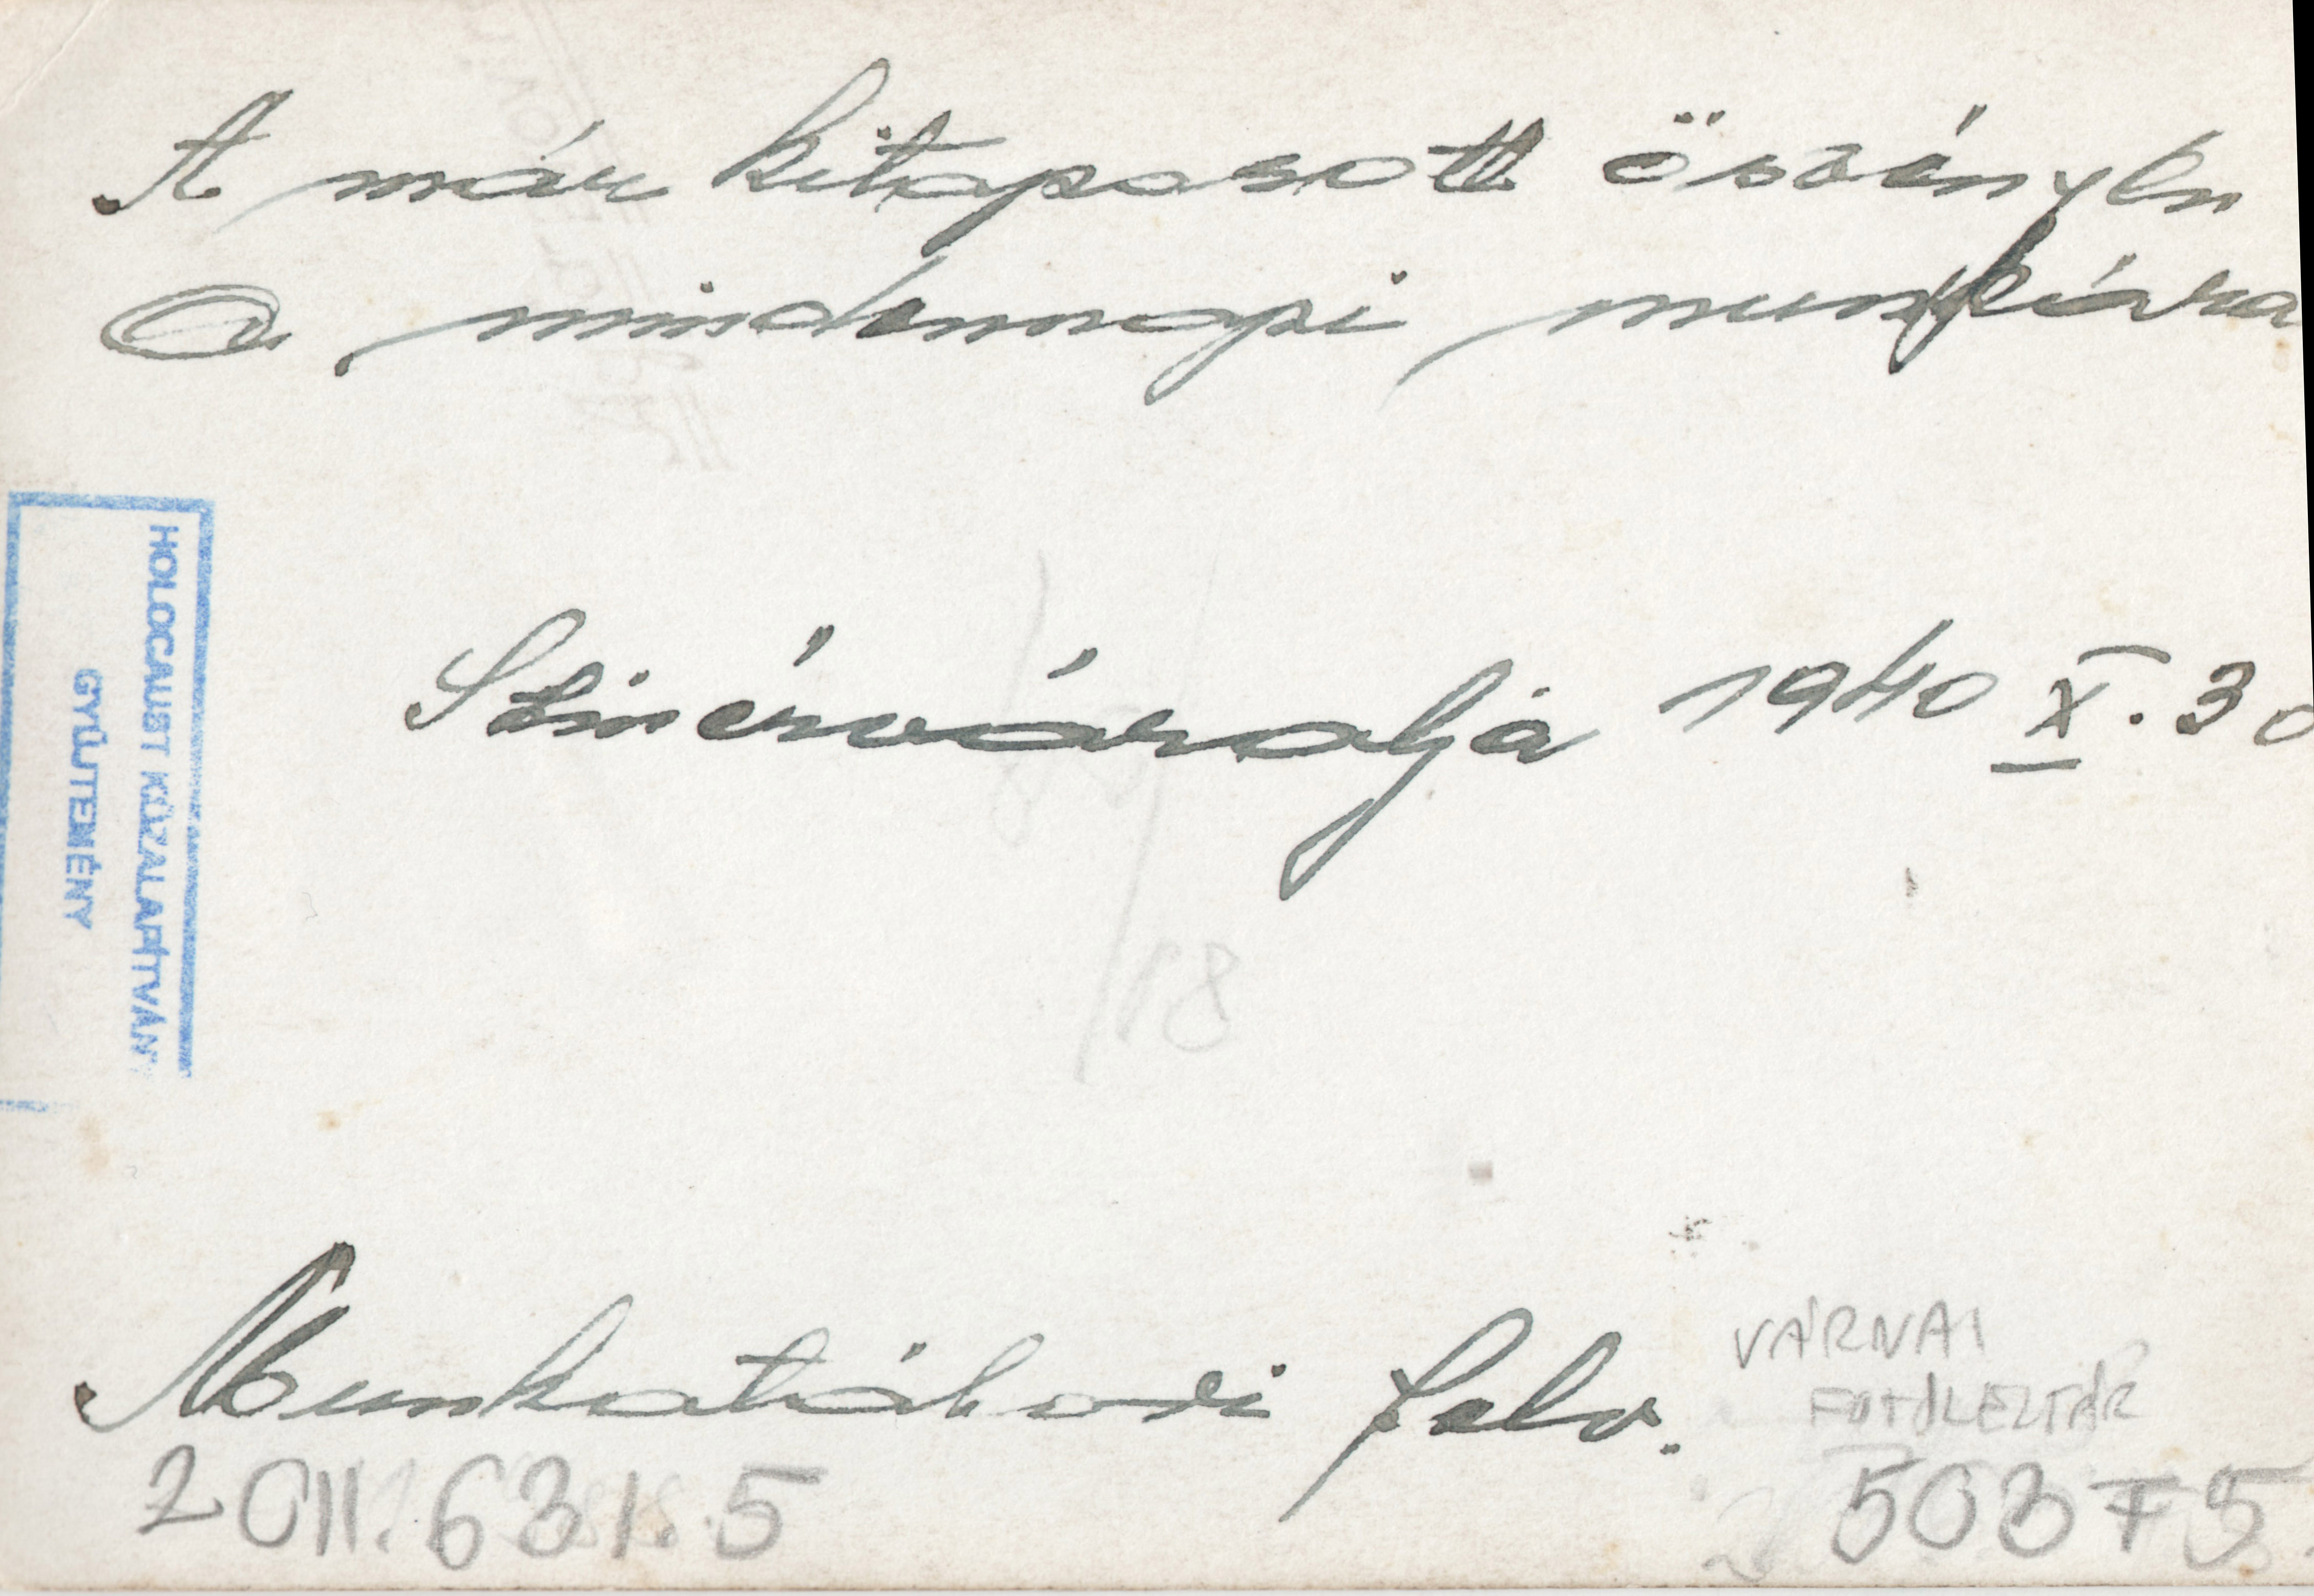 A már kitaposott ösvényen
a mindennapi munkára
Szinérváralja 1940 X. 30
HOLOCAUST KÖZALAPÍTVÁN
GYŰJTEMÉNY
18
Munkatábori felv.
VÁRNAI
2011.631.5
503 F 5